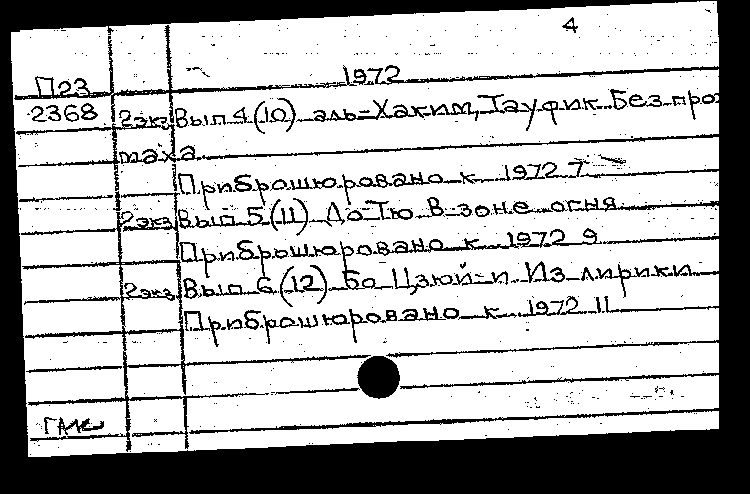 4
П23 1972
2368 2экз Вып 4 (10) аль-Хаким, Тауфик Без про
маха
Приброшюровано к 1972 7
2экз Вып 5 (11) До Тю В зоне огня
Приброшюровано к 1972 9
2экз Вып 6 (12) Бо Цзюй-и Из лирики
Приброшюровано к 1972 11